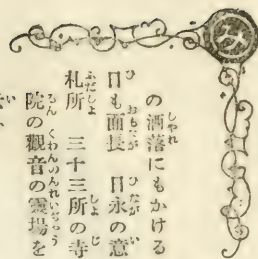 み
の洒落にもかける
日も面長　日永の意
札所　三十三所の寺
院の觀音の靈場を